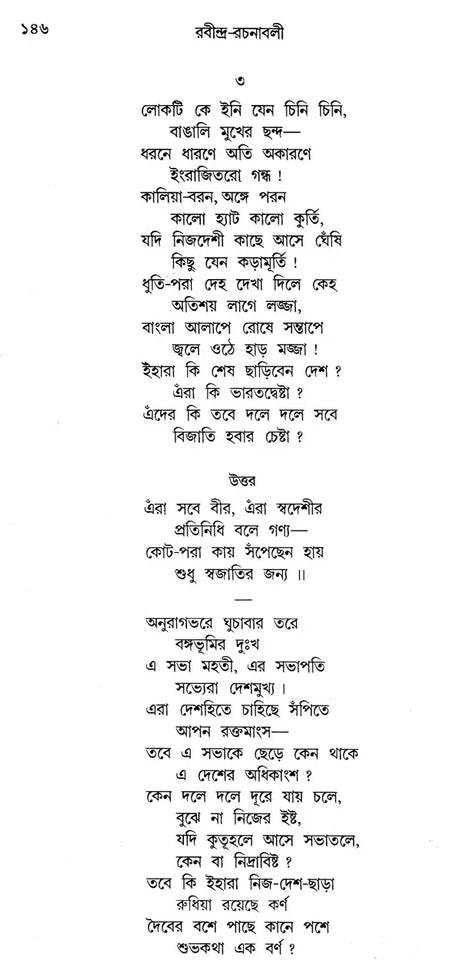 ১৪৬
রবীন্দ্র-রচনাবলী
৩
লোকটি কে ইনি যেন চিনি চিনি,
বাঙালি মুখের ছন্দ—
ধরনে ধারণে অতি অকারণে
ইংরাজিতরো গন্ধ !
কালিয়া-বরন, অঙ্গে পরন
কালো হ্যাট কালো কুর্তি,
যদি নিজদেশী কাছে আসে ঘেঁষি
কিছু যেন কড়ামূর্তি !
ধুতি-পরা দেহ দেখা দিলে কেহ
অতিশয় লাগে লজ্জা,
বাংলা আলাপে রোষে সন্তাপে
জ্বলে ওঠে হাড় মজ্জা !
ইহারা কি শেষ ছাড়িবেন দেশ ?
এঁরা কি ভারতদ্বেষ্টা ?
এঁদের কি তবে দলে দলে সবে
বিজাতি হবার চেষ্টা ?
উত্তর
এঁরা সবে বীর, এঁরা স্বদেশীর
প্রতিনিধি বলে গণ্য—
কোট-পরা কায় সঁপেছেন হায়
শুধু স্বজাতির জন্য ॥
—
অনুরাগভরে ঘুচাবার তরে
বঙ্গভূমির দুঃখ
এ সভা মহতী, এর সভাপতি
সভ্যেরা দেশমুখ্য ।
এরা দেশহিতে চাহিছে সঁপিতে
আপন রক্তমাংস—
তবে এ সভাকে ছেড়ে কেন থাকে
এ দেশের অধিকাংশ ?
কেন দলে দলে দূরে যায় চলে,
বুঝে না নিজের ইষ্ট,
যদি কুতূহলে আসে সভাতলে,
কেন বা নিদ্রাবিষ্ট ?
তবে কি ইহারা নিজ-দেশ-ছাড়া
রুধিয়া রয়েছে কর্ণ
দৈবের বশে পাছে কানে পশে
শুভকথা এক বর্ণ ?